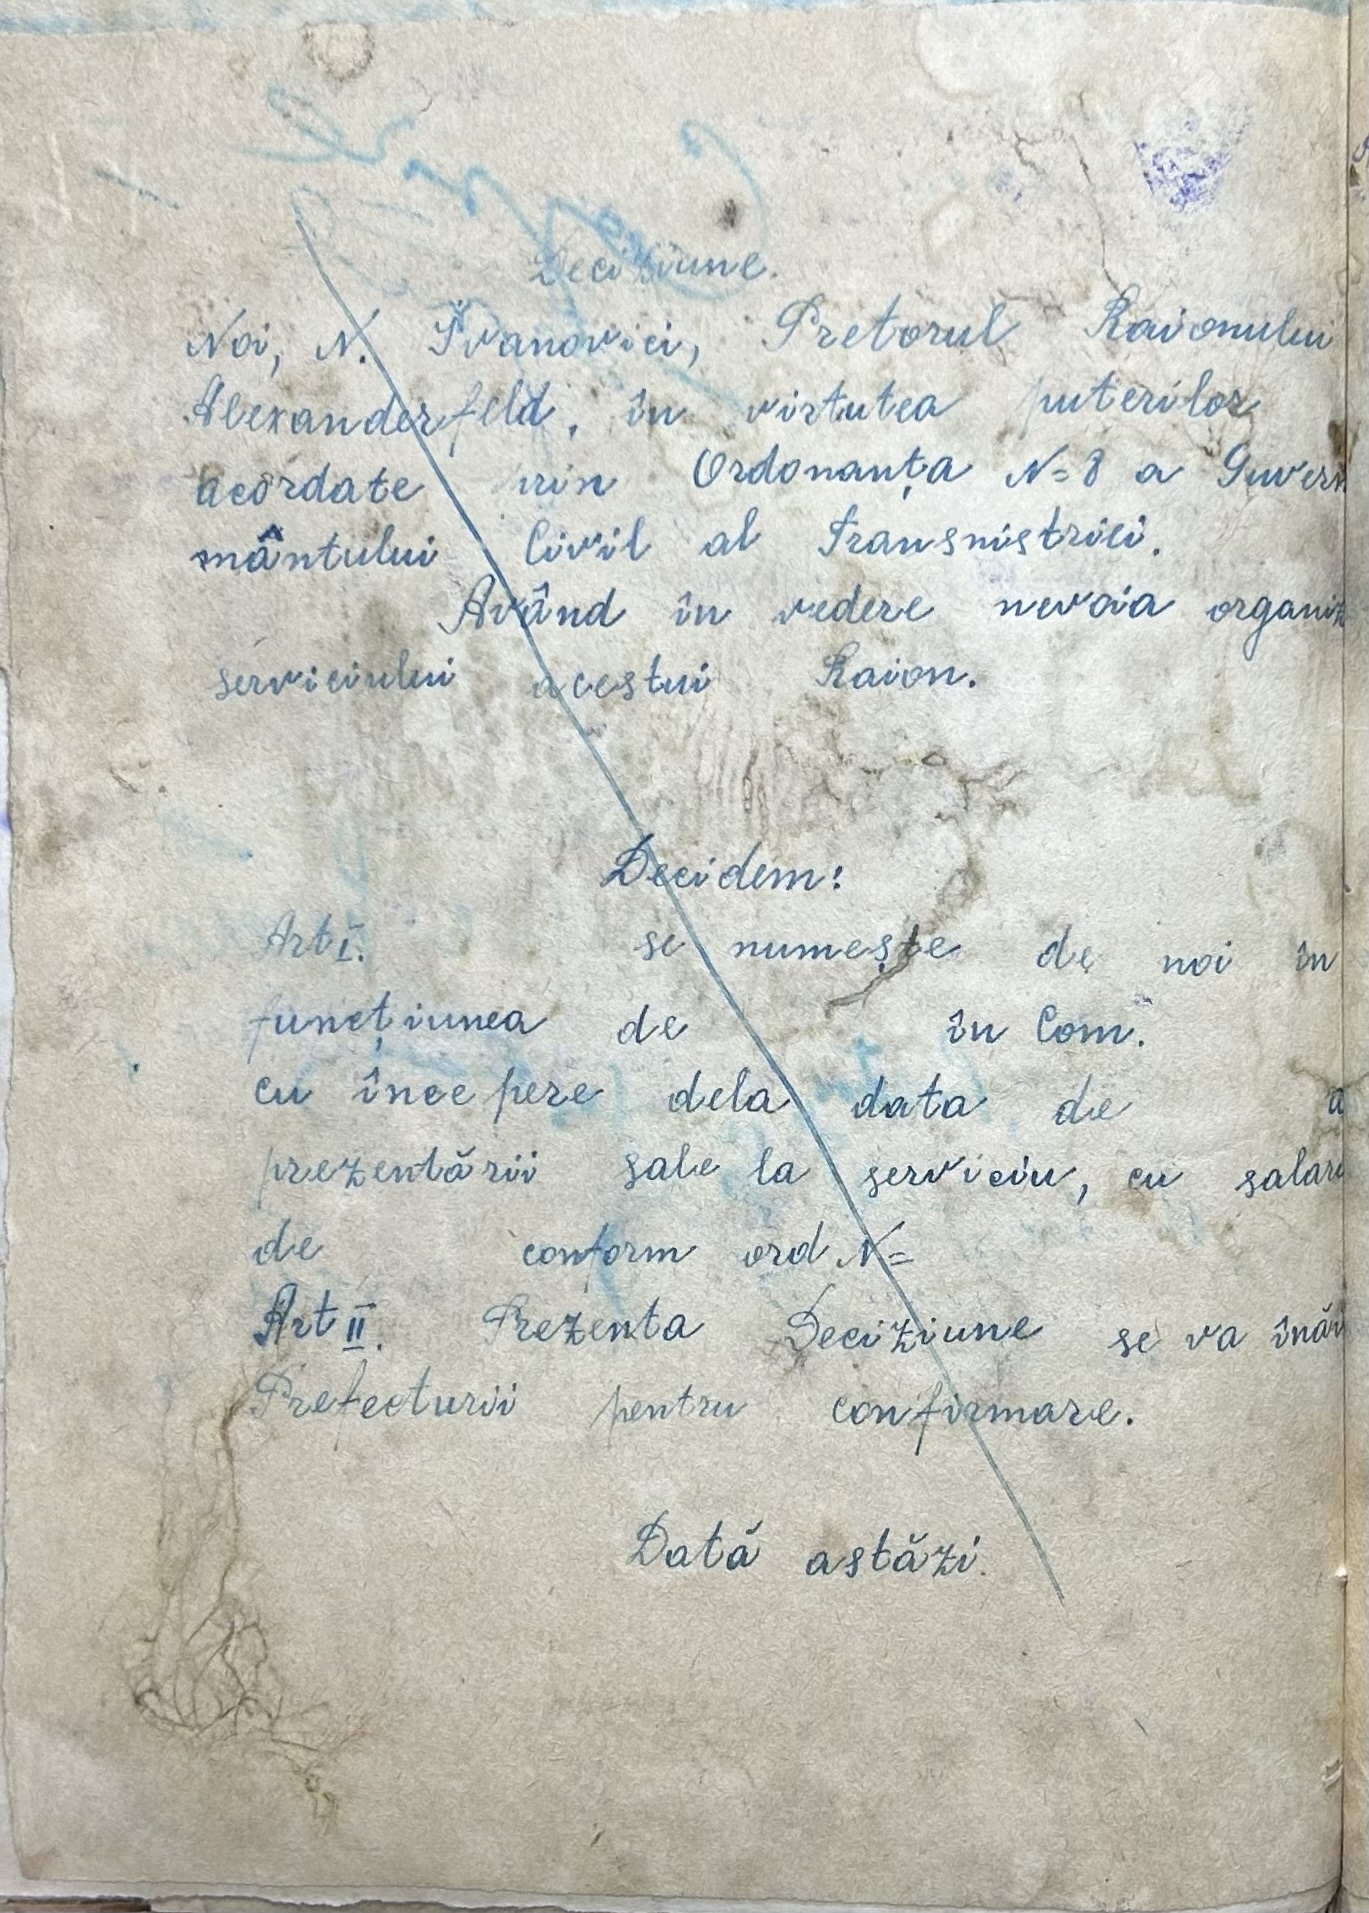 Deciziune.
Noi, N. Ivanovici, Pretorul Raionului
Alexanderfeld, în virtutea puterilor
acordate prin Ordonanța N=8 a Guver
mântului Civil al Transnistriei.
Având în vedere nevoia organiz
serviciului acestui Raion.
Decidem:
Art I. se numește de noi în
funcțiunea de în Com.
cu începere dela data de a
prezentării sale la serviciu, cu salar
de conform ord N=
Art II. Prezenta Deciziune se va îna
Prefecturii pentru confirmare.
Dată astăzi.